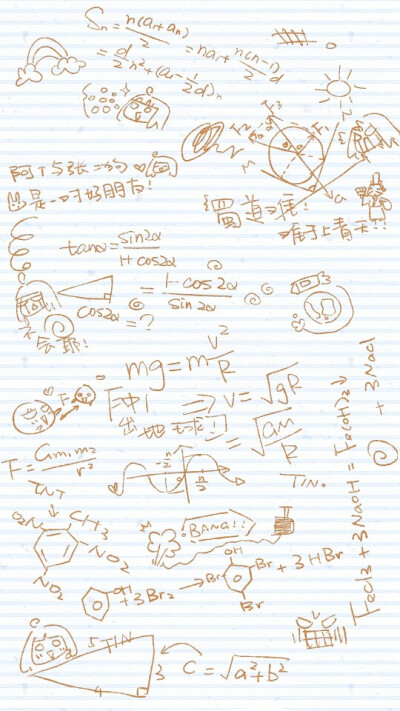 Sn = n(a₁+an)/2 = na₁ + n(n-1)/2 d
= d/2 n² + (a₁ - 1/2 d)n
阿T与张二狗
是一对好朋友!
蜀道难!
难于上青天!!
tanα = sin2α/1+cos2α
= 1-cos2α/sin2α
cos2α = ?
不会耶!
mg = m V²/R
F
F中1 ⇒ V = √gR
出地球! = √GM/R
F = Gm₁m₂/r²
-π/2
π/2
TIN.
TNT
CH₃
O₂N
NO₂
NO₂
BANG!!
OH + 3Br₂ → OH Br Br Br + 3HBr
FeCl₃ + 3NaOH = Fe(OH)₂↓ + 3NaCl
5 TIN
3
4
C = √a²+b²